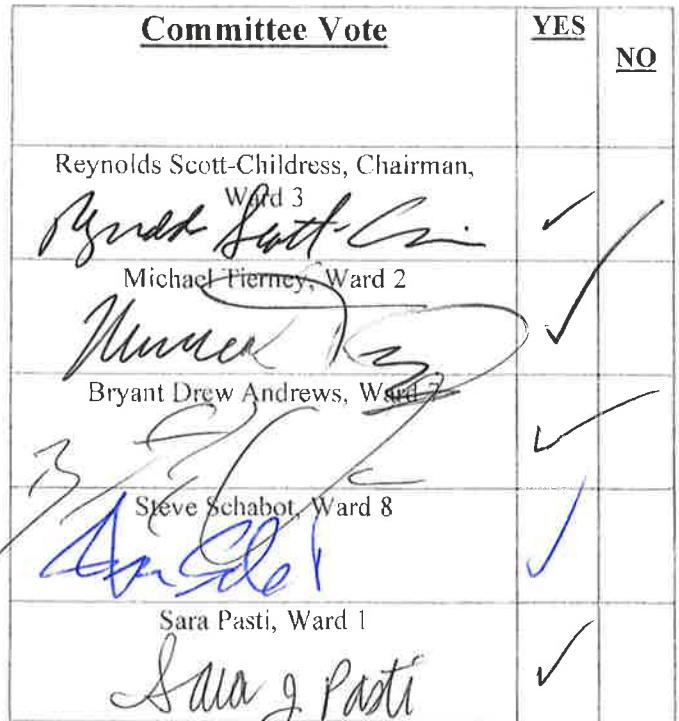 Committee Vote YES NO
Reynolds Scott-Childress, Chairman,
Ward 3
✓
Michael Tierney, Ward 2
✓
Bryant Drew Andrews, Ward 7
✓
Steve Schabot, Ward 8
✓
Sara Pasti, Ward 1
✓
Sara J Pasti